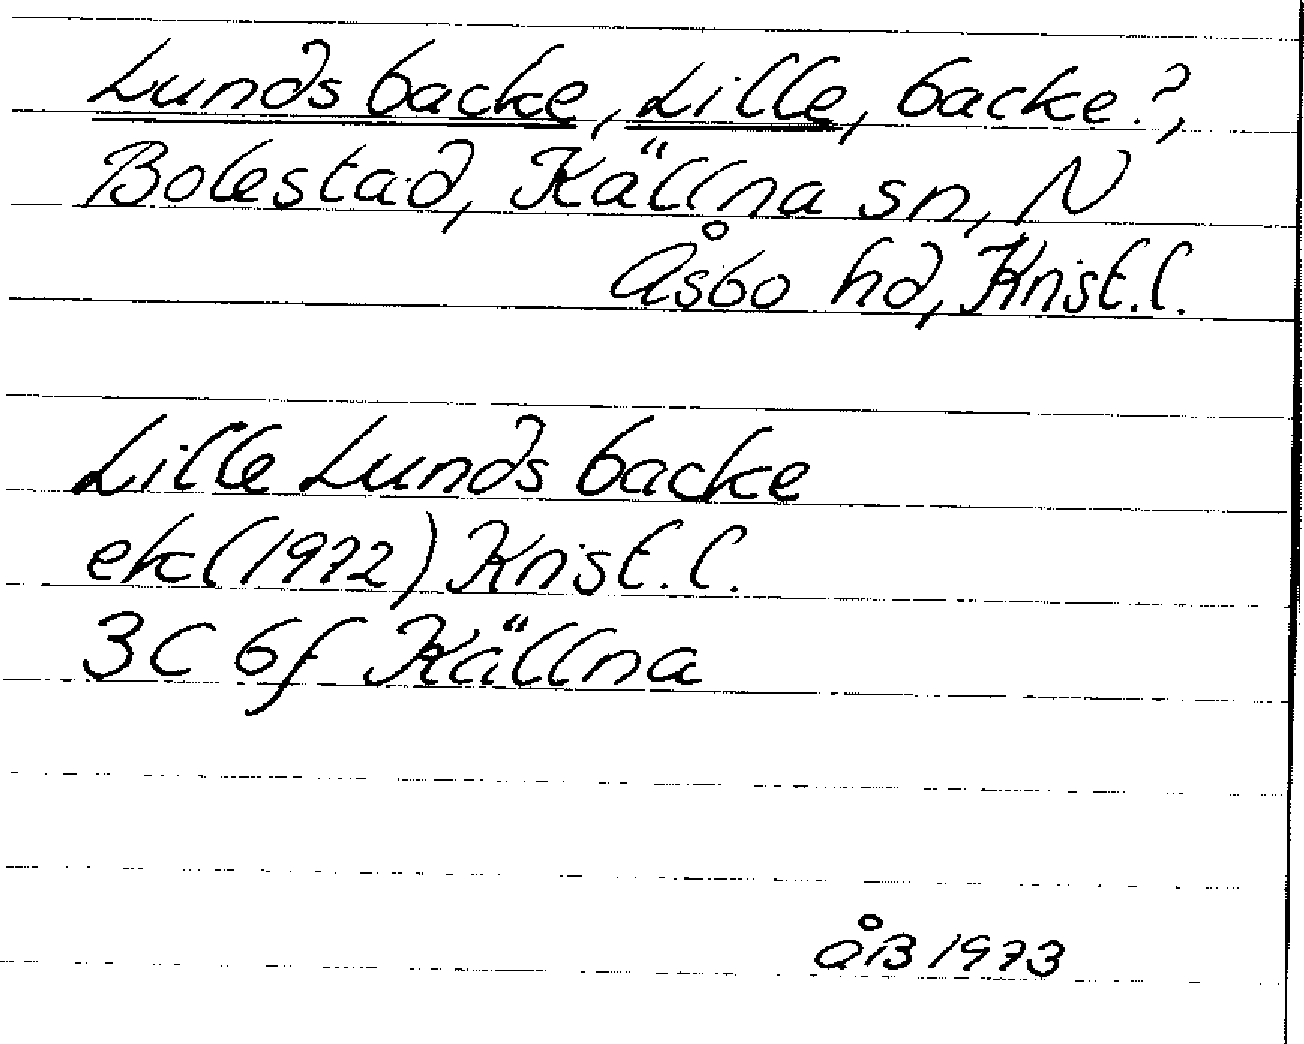 Lunds backe, Lille, backe?,
Bolestad, Källna sn, N
Åsbo hd, Krist. l.
Lille Lunds backe
ek (1972) Krist. l.
3C 6f Källna
ÅB 1973